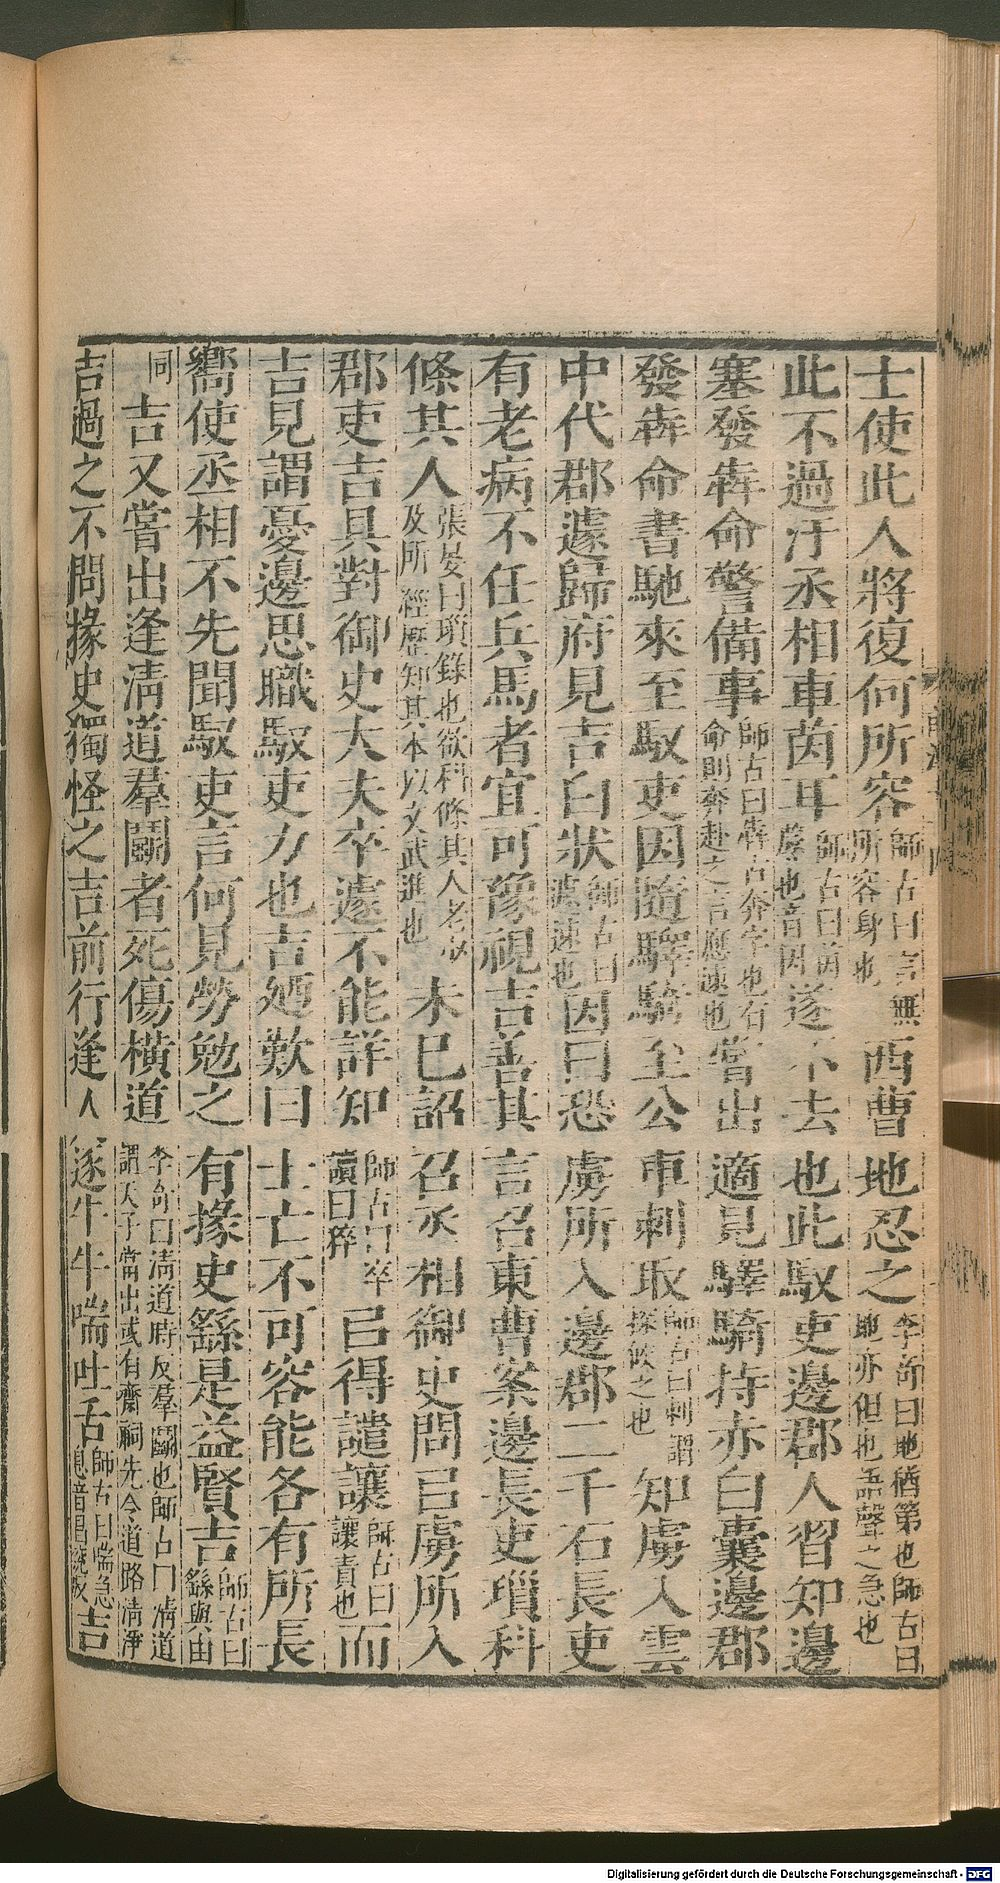 士使此人將復何所容師古曰言無所容身也西曹地忍之李奇曰地猶第也師古曰地亦但也語聲之急也
此不過汙丞相車茵耳師古曰茵蓐也音因遂不去也此馭吏邊郡人習知邊
塞發犇命警備事師古曰犇古奔字也有命則奔赴之言應速也嘗出適見驛騎持赤白囊邊郡
發犇命書馳來至馭吏因隨驛騎至公車刺取師古曰刺謂探候之也知虜入雲
中代郡遽歸府見吉白狀師古曰遽速也因曰恐虜所入邊郡二千石長吏
有老病不任兵馬者宜可豫視吉善其言召東曹案邊長吏瑣科
條其人張晏曰瑣錄也欲科條其人老少及所經歷知其本以文武進也未已詔召丞相御史問㠯虜所入
郡吏吉具對御史大夫卒遽不能詳知師古曰卒讀曰猝㠯得譴讓師古曰讓責也而
吉見謂憂邊思職馭吏力也吉廼歎曰士亡不可容能各有所長
嚮使丞相不先聞馭吏言何見勞勉之有掾史繇是益賢吉師古曰繇與由
同吉又嘗出逢淸道羣鬭者死傷橫道李奇曰淸道時反羣鬭也師古曰淸道謂天子當出或有齋祠先令道路淸淨
吉過之不問掾史獨怪之吉前行逢人逐牛牛喘吐舌師古曰喘急息音昌兗反吉
Digitalisierung gefördert durch die Deutsche Forschungsgemeinschaft - DFG